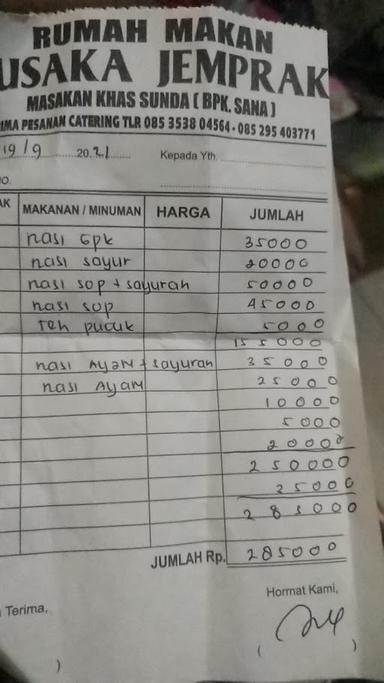 RUMAH MAKAN
USAKA JEMPRAK
MASAKAN KHAS SUNDA ( BPK. SANA )
IMA PESANAN CATERING TLR 085 3538 04564 - 085 295 403771
19/9 20.21 Kepada Yth.
O
AK MAKANAN / MINUMAN HARGA JUMLAH
nasi 6pk 35000
nasi sayur 20000
nasi sop + sayuran 50000
nasi sop 45000
Teh pucuk 5000
155000
nasi AyaM + sayuran 35000
nasi AyaM 25000
10000
5000
20000
250000
25000
285000
JUMLAH Rp. 285000
Hormat Kami,
Terima,
( )
)